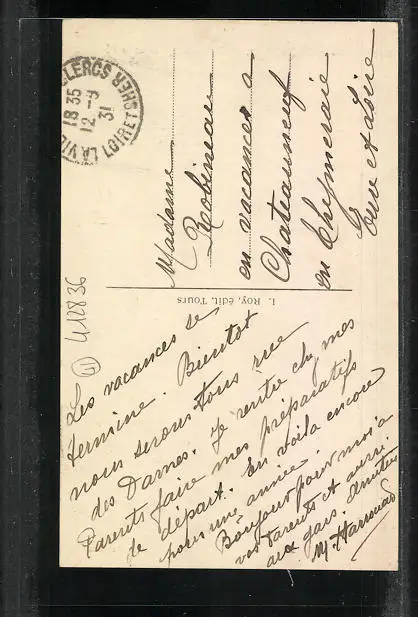 CLERCS
18 35
12 -9
31
LOIR ET CHER
LA VILLE
Madame
Robineau
en vacances a
Chateauneuf
en Thymeraie
Eure et Loire
L. Roy, édit. Tours
41 412836
Les vacances se
termine. Bientot
nous serons tous rue
des Dames. Je rentre chez mes
Parents faire mes préparatifs
de départ. En voila encore
pour une année.
Bonjour pour moi a
vos Parents et aussi
aux gars. Amities
M.